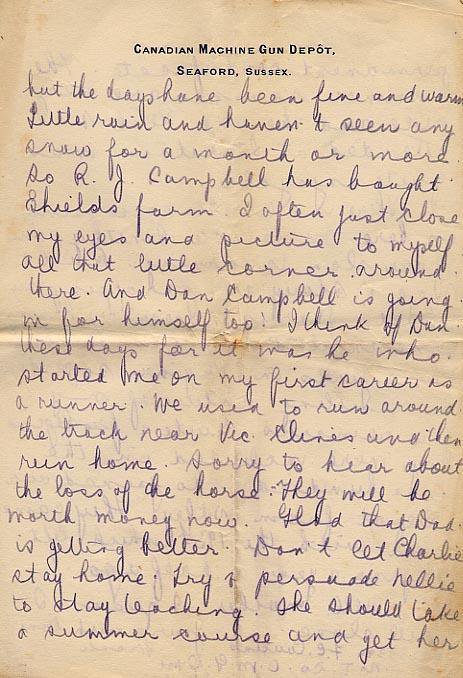 CANADIAN MACHINE GUN DEPÔT,
SEAFORD, SUSSEX.
but the days have been fine and warm
Little rain and haven't seen any
snow for a month or more.
So R. J. Campbell has bought
Shields farm. I often just close
my eyes and picture to myself
all that little corner around
there. And Dan Campbell is going
in for himself too! I think of Dan
these days for it was he who
started me on my first career as
a runner. We used to run around
the track near Vic. Clines and then
run home. Sorry to hear about
the loss of the horse. They will be
worth money now. Glad that Dad
is getting better. Don't let Charlie
stay home. Try & persuade Nellie
to stay teaching. She should take
a summer course and get her